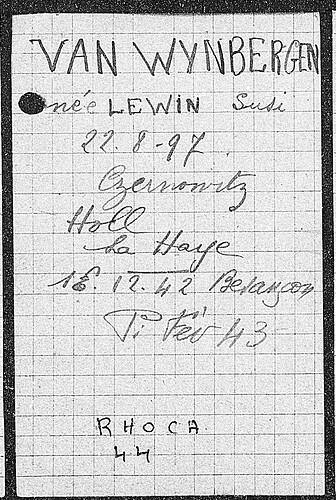 VAN WYNBERGEN
née LEWIN Susi
22.8-97.
Czernowitz
Holl
La Haye
16.12.42 Besançon
Pi Fév 43
RHOCA
44